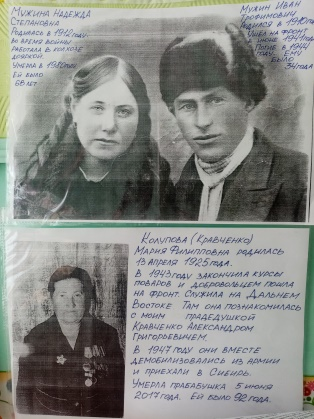 Мужина Надежда
Степановна
Родилась в 1912 году.
Во время войны
работала в колхозе
дояркой.
Умерла в 1980 году
Ей было
68 лет
Мужин Иван
Трофимович
Родился в 1910 году
Ушёл на фронт
в июне 1941 года
Погиб в 1944
году. Ему
было
34 года
Колупова (Кравченко)
Мария Филипповна родилась
13 апреля 1925 года.
В 1943 году закончила курсы
поваров и добровольцем пошла
на фронт. Служила на Дальнем
Востоке. Там она познакомилась
с моим прадедушкой
Кравченко Александром
Григорьевичем.
В 1947 году они вместе
демобилизовались из армии
и приехали в Сибирь.
Умерла прабабушка 5 июня
2017 года. Ей было 92 года.